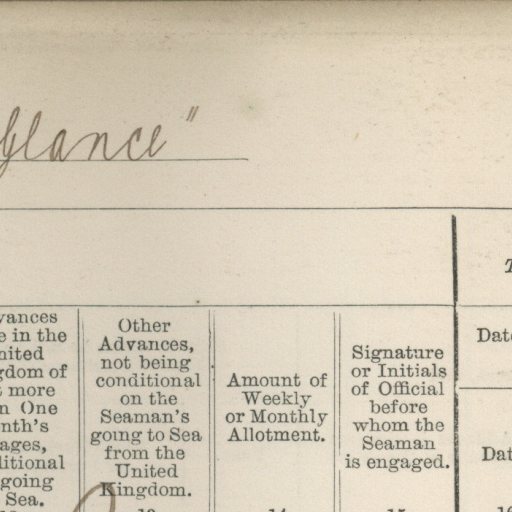 Glance"
vances
e in the
nited
gdom of
t more
n One
nth's
ages,
ditional
going
Sea.
Other
Advances,
not being
conditional
on the
Seaman's
going to Sea
from the
United
Kingdom.
Amount of
Weekly
or Monthly
Allotment.
Signature
or Initials
of Official
before
whom the
Seaman
is engaged.
Date
Dat